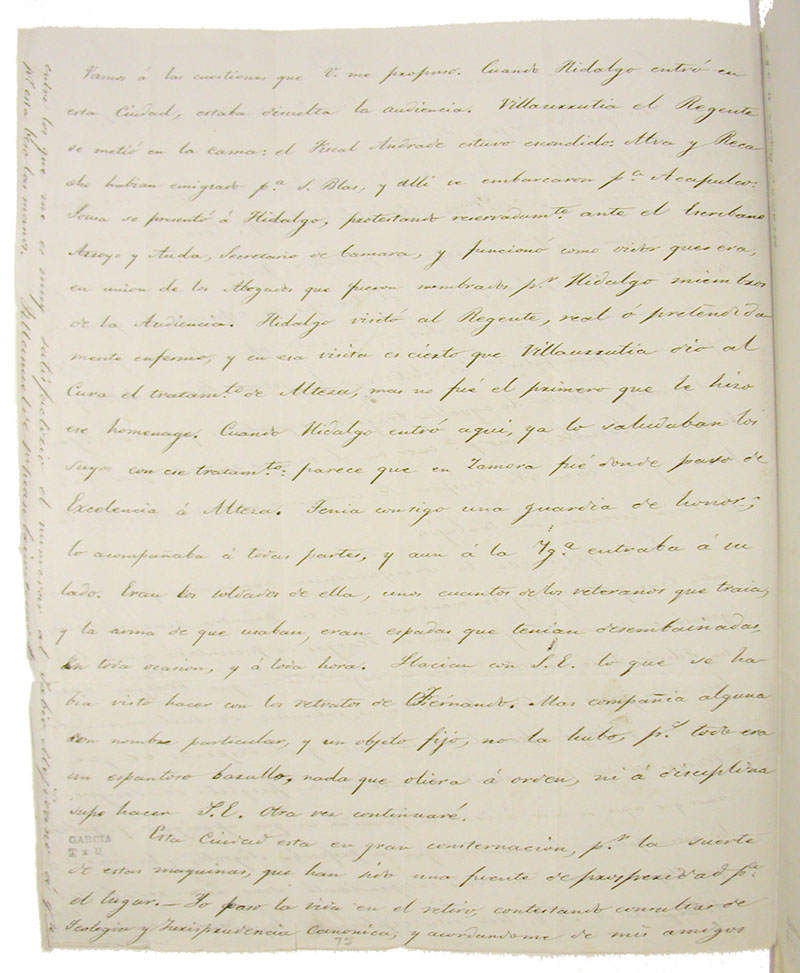 Vamos á las cuestiones que V. me propuso. Cuando Hidalgo entró en
esta Ciudad, estaba disuelta la audiencia. Villaurrutia el Regente
se metió en la cama: el Fiscal Andrade estuvo escondido: Alva y Reca-
cho habian emigrado p.ª S. Blas, y alli se embarcaron p.ª Acapulco:
Sousa se presentó á Hidalgo, protestando reservadam.te ante el Escribano
Arroyo y Anda, Secretario de Camara, y funcionó como oidor que era,
en union de los Abogados que fueron nombrados p.r Hidalgo miembros
de la Audiencia. Hidalgo visitó al Regente, real ó pretendida
mente enfermo, y en esa visita es cierto que Villaurrutia dio al
Cura el tratam.to de Alteza, mas no fué el primero que le hizo
ese homenage. Cuando Hidalgo entró aqui, ya lo saludaban los
suyos con ese tratam.to: parece que en Zamora fué donde paso de
Excelencia á Alteza. Tenia consigo una guardia de honor,
lo acompañaba á todas partes, y aun á la Yg.ª entraba á su
lado. Eran los soldados de ella, unos cuantos de los veteranos que traia,
y la arma de que usaban, eran espadas que tenian desembainadas
en toda ocasion, y á toda hora. Hacian con S.E. lo que se ha-
bia visto hacer con los retratos de Fernando. Mas compañia alguna
con nombre particular, y un objeto fijo, no la hubo, p.r todo era
un espantoso barullo, nada que oliera á orden, ni á disciplina
supo hacer S.E. Otra vez continuaré.
Esta Ciudad esta en gran consternacion, p.r la suerte
de estas maquinas, que han sido una fuente de prosperidad p.ª
el lugar.— Yo paso la vida en el retiro, contestando consultas de
Teologia y Jurisprudencia Canonica, y acordandome de mis amigos
entre los que me es muy satisfactorio el numerar al
GARCIA
75